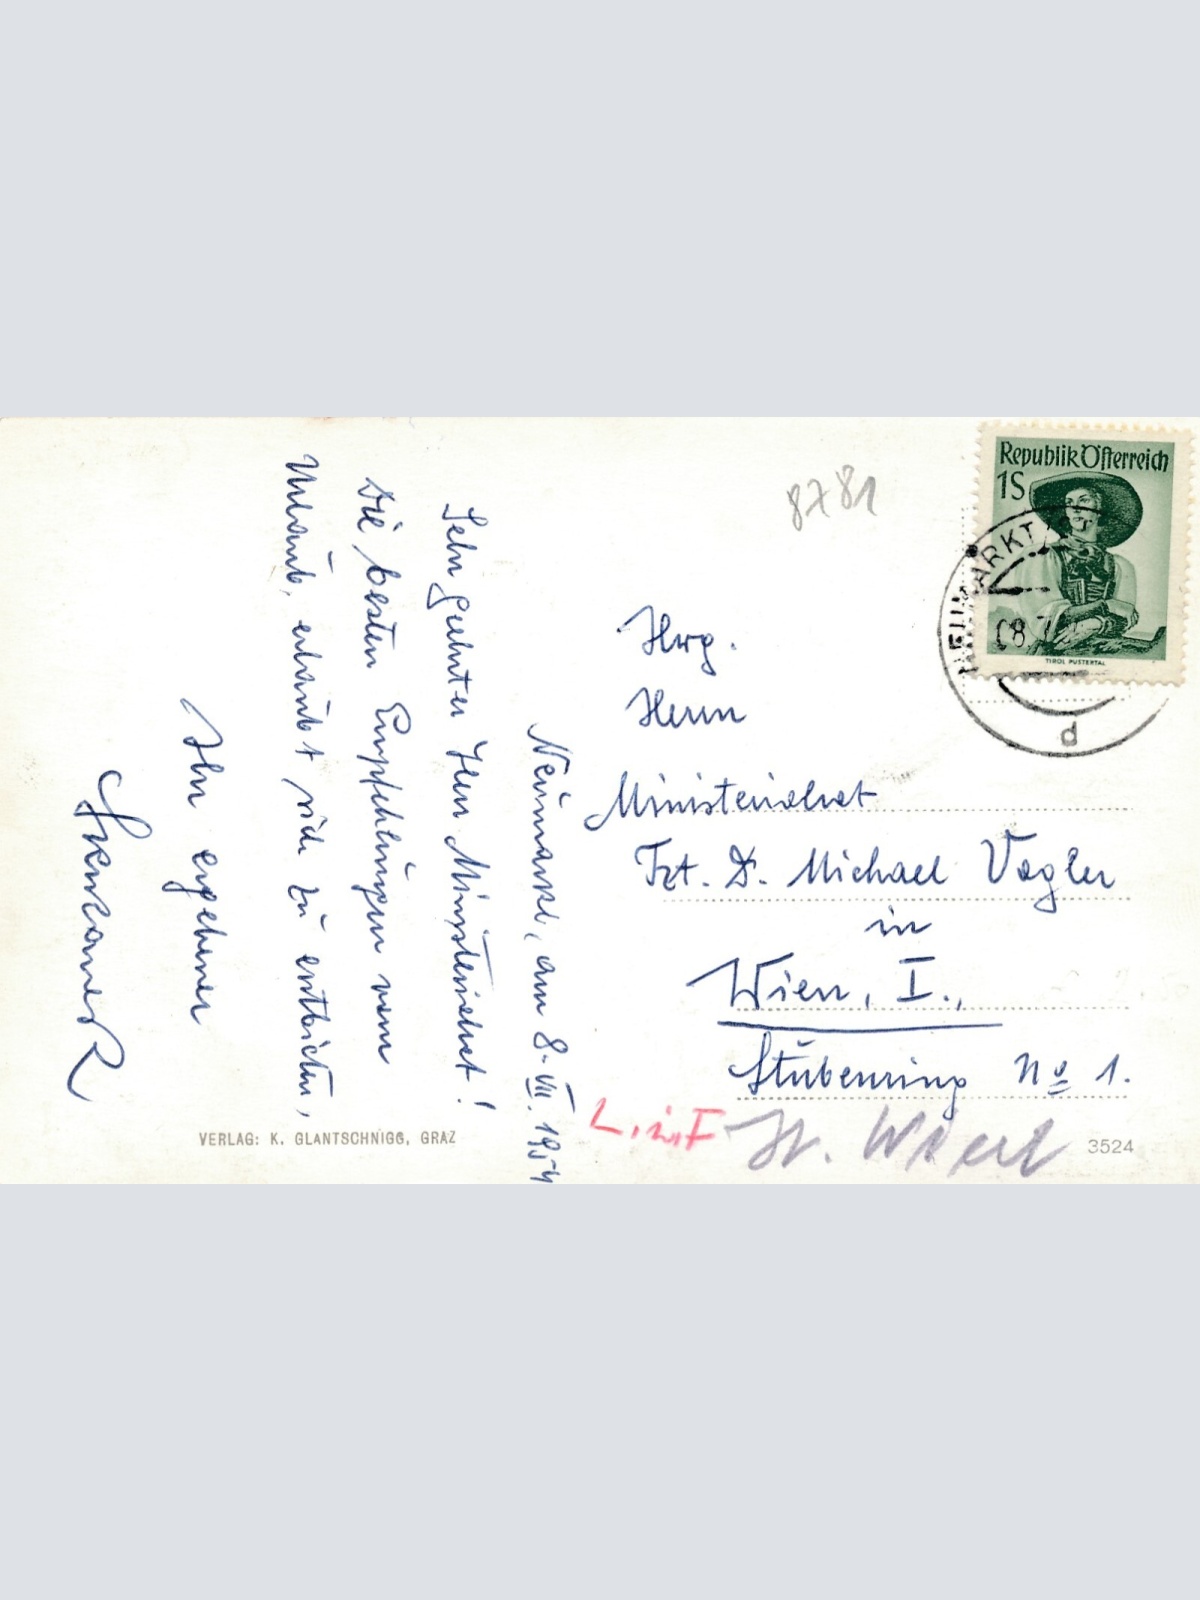 Neumarkt, am 8. VII. 1954
Sehr geehrter Herr Ministerialrat!
Die besten Empfehlungen vom
Urlaub, erlaubt sich zu entbieten,
Ihr ergebener
VERLAG: K. GLANTSCHNIGG, GRAZ
8781
Republik Österreich
1S
TIROL PUSTERTAL
NEUMARKT
08.7
d
Hwg.
Herrn
Ministerialrat
Tzt. D. Michael Vogler
in
Wien, I.,
Stubenring No 1.
3524